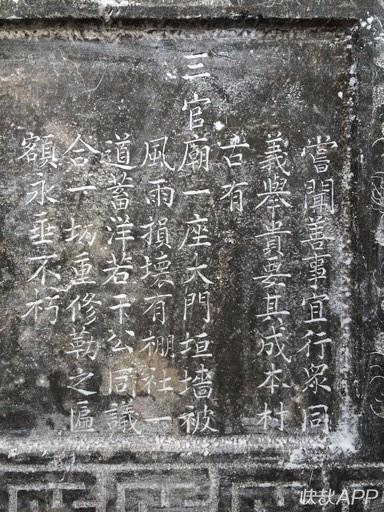 嘗聞善事宜行眾同
義舉貴要其成本村
古有
三官廟一座大門垣墻被
風雨損壞有棚社一
道蓄洋若干公同議
合一坊重修勒之匾
額永垂不朽
快哉APP